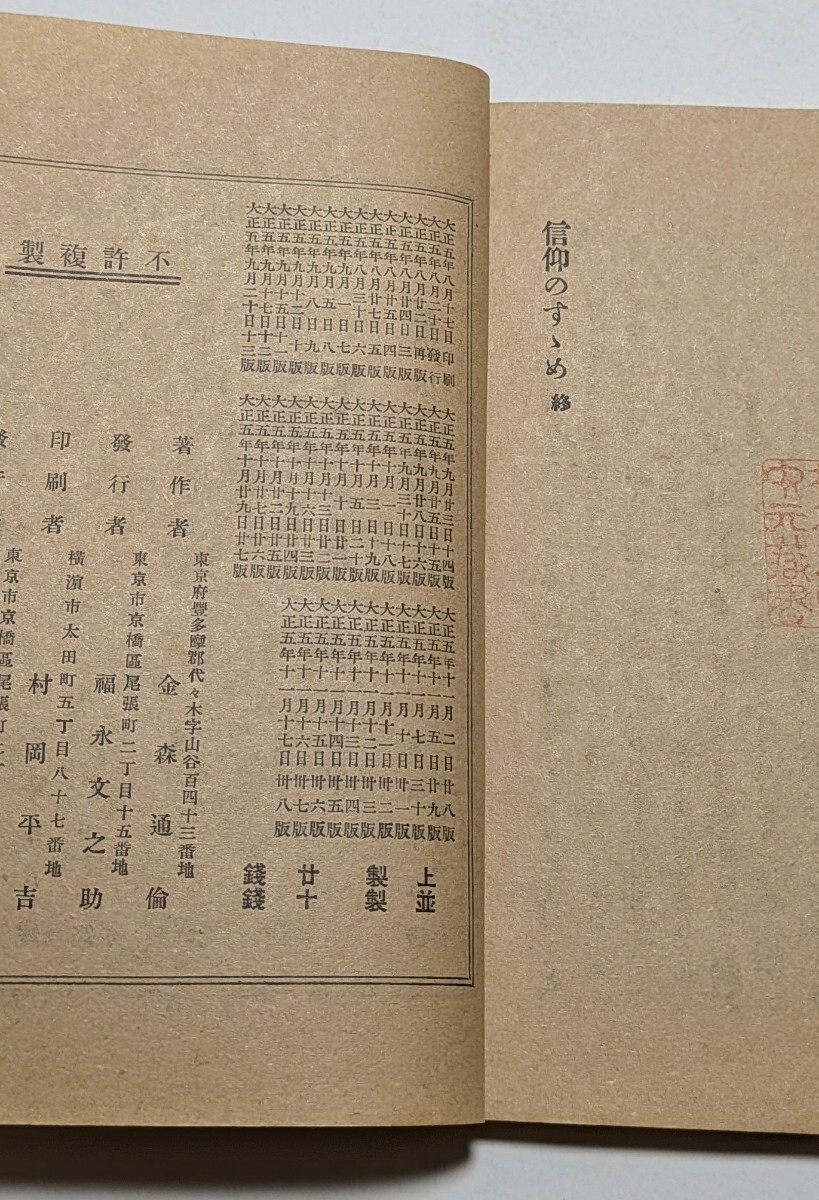 信仰のすゝめ 終
大正五年八月十七日印刷
大正五年八月二十日發行
大正五年八月廿二日再版
大正五年八月廿四日三版
大正五年八月廿五日四版
大正五年八月廿七日五版
大正五年八月三十日六版
大正五年九月一日七版
大正五年九月五日八版
大正五年九月八日九版
大正五年九月十二日十版
大正五年九月十五日十一版
大正五年九月十七日十二版
大正五年九月二十日十三版
大正五年九月廿三日十四版
大正五年九月廿五日十五版
大正五年九月廿八日十六版
大正五年九月三十日十七版
大正五年十月一日十八版
大正五年十月三日十九版
大正五年十月五日二十版
大正五年十月十日廿一版
大正五年十月十三日廿二版
大正五年十月十六日廿三版
大正五年十月十九日廿四版
大正五年十月廿二日廿五版
大正五年十月廿六日廿六版
大正五年十月廿九日廿七版
大正五年十一月二日廿八版
大正五年十一月五日廿九版
大正五年十一月七日三十版
大正五年十一月十日卅一版
大正五年十一月十一日卅二版
大正五年十一月十二日卅三版
大正五年十一月十三日卅四版
大正五年十一月十四日卅五版
大正五年十一月十五日卅六版
大正五年十一月十六日卅七版
大正五年十一月十七日卅八版
上製 廿錢
並製 十錢
不許複製
東京府豐多摩郡代々木字山谷百四十三番地
著作者 金森通倫
東京市京橋區尾張町二丁目十五番地
發行者 福永文之助
横濱市太田町五丁目八十七番地
印刷者 村岡平吉
東京市京橋區尾張町二